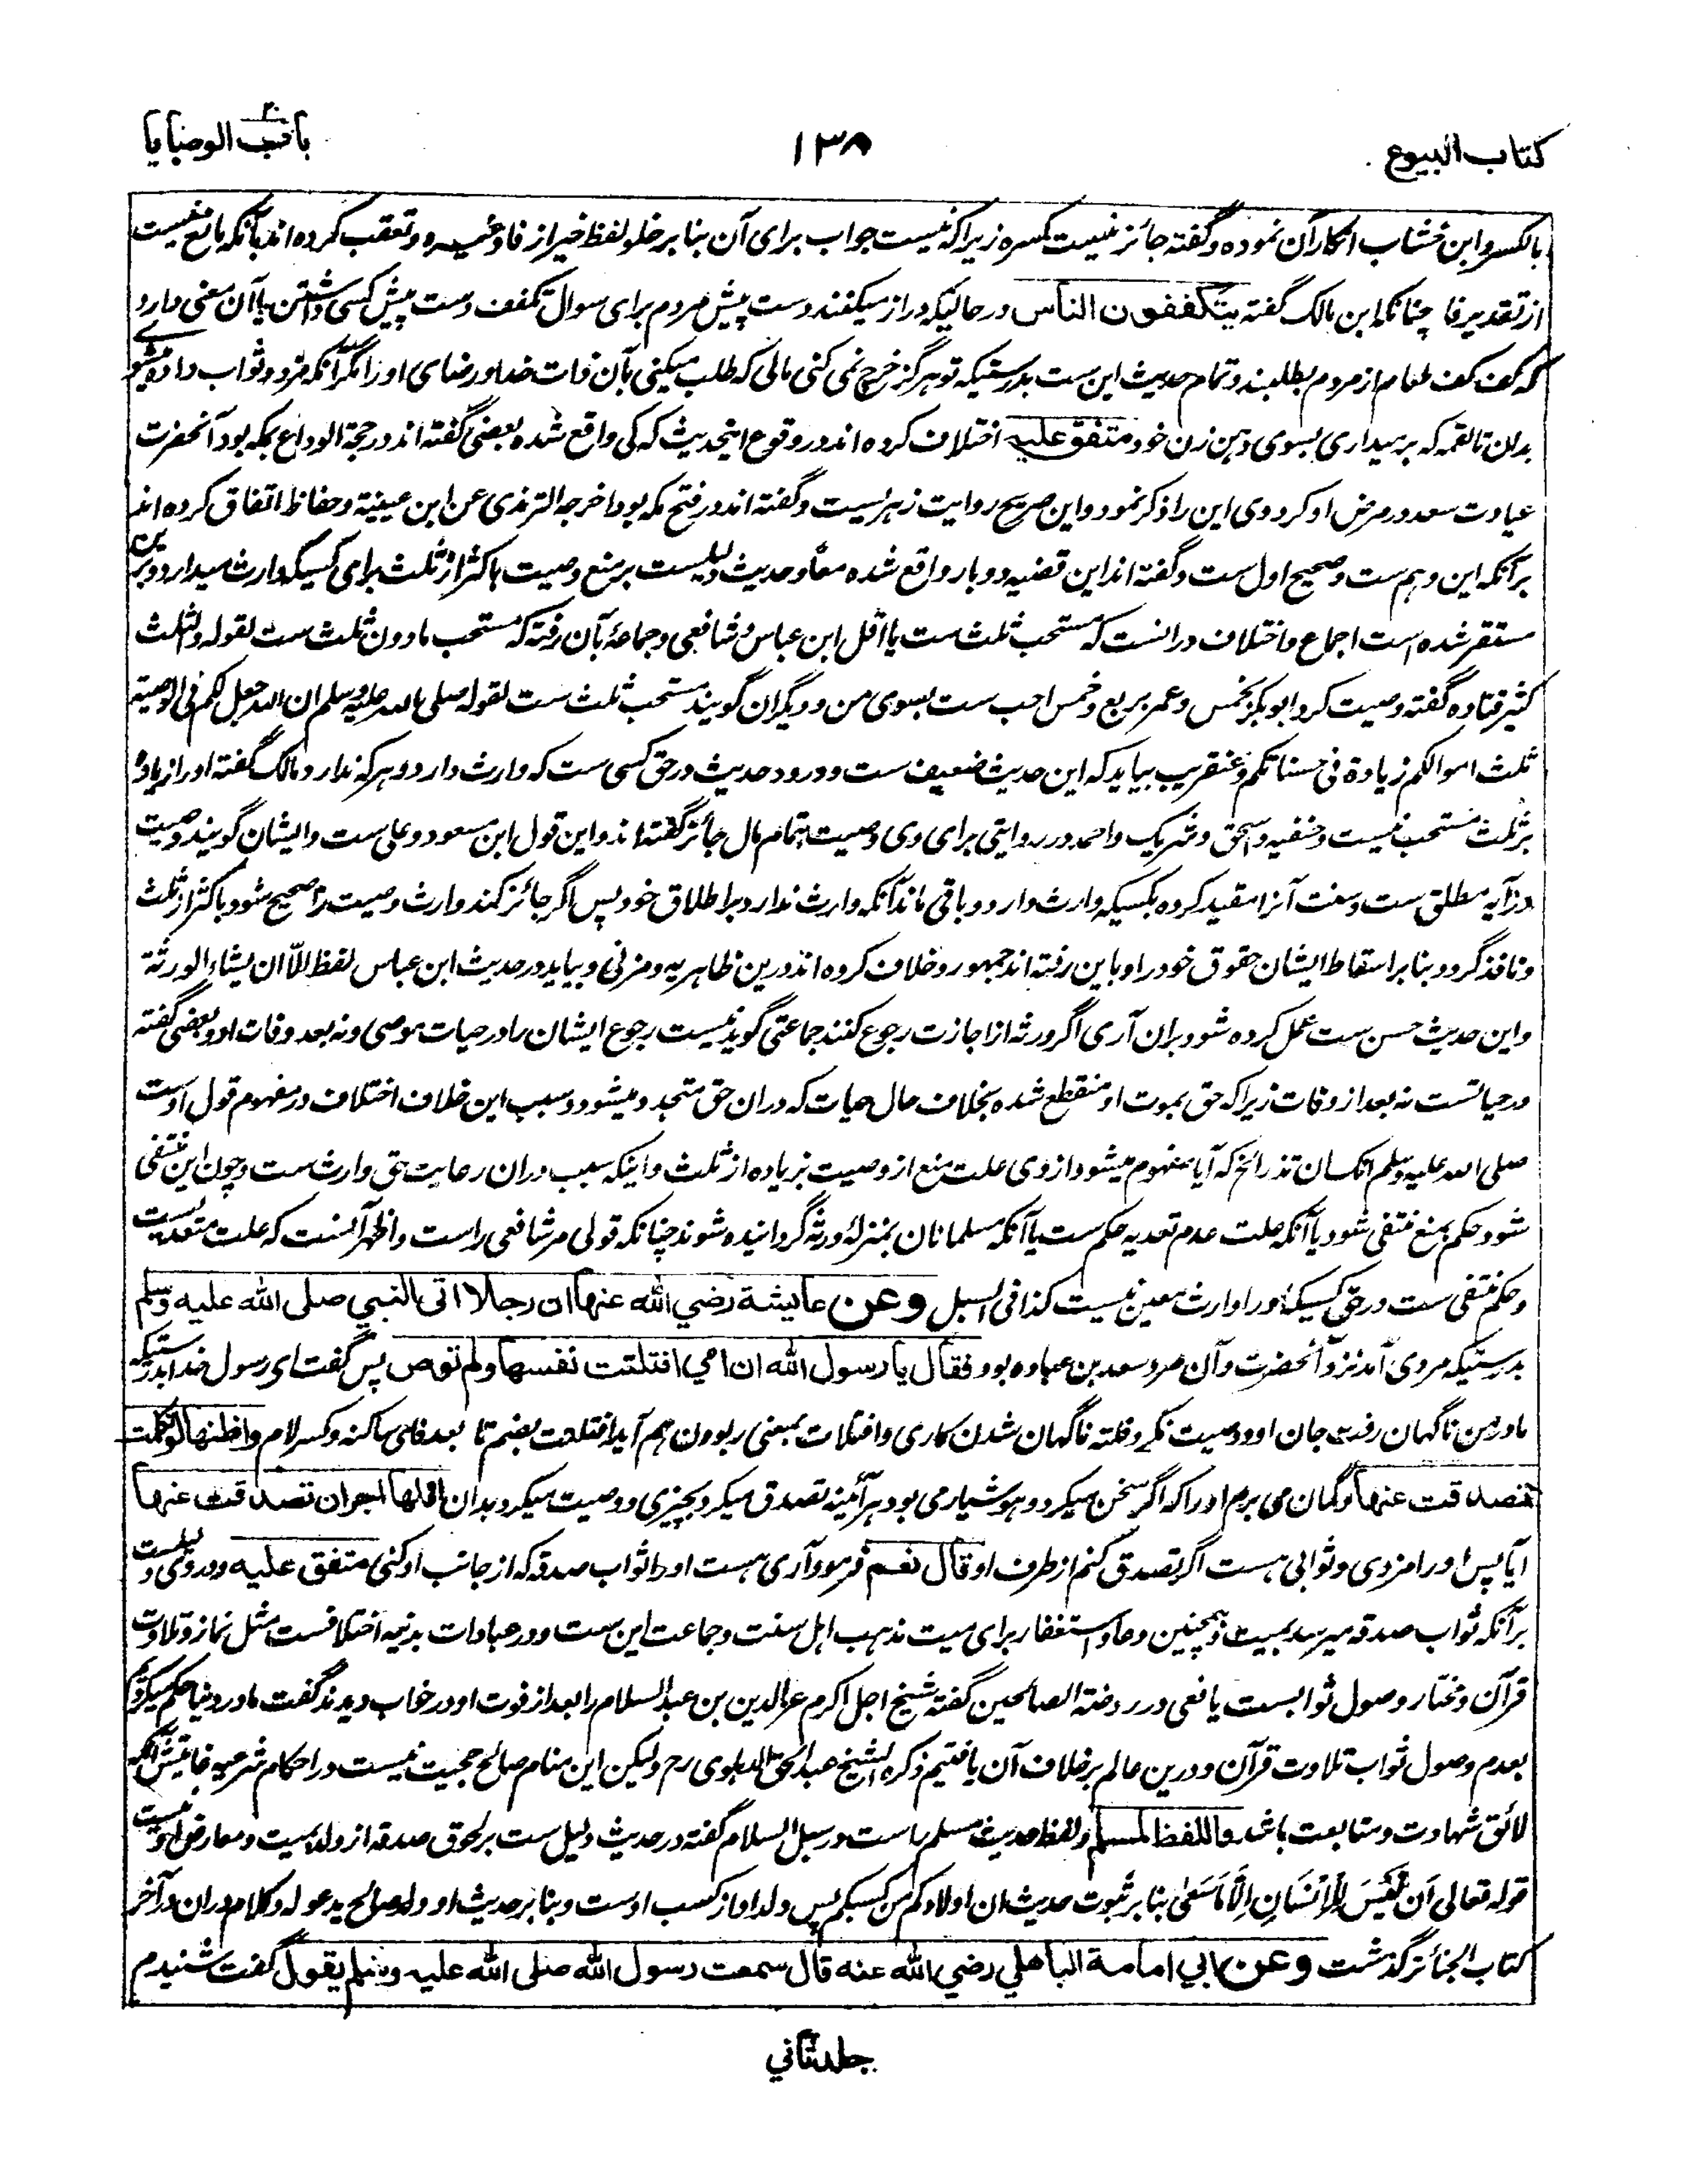 کتاب البیوع
۱۳۸
باب الوصایا
بالکسر و ابن خشاب انکار آن نموده و گفته جائز نیست کسره زیرا که نیست جواب برای آن بنا بر خلو لفظ خیر از فا وغیره و تعقب کرده اند بآنکه مانع نیست
از تقدیر فا چنانکه ابن مالک گفته یتکففون الناس در حالیکه دراز میکنند دست پیش مردم برای سوال تکفف دست پیش کسی داشتن یا آن معنی دارد
که کف کف طعام از مردم بطلبند و تمام حدیث این ست بدرستیکه تو هرگز خرچ نمی کنی مالی که طلب میکنی بآن ذات خدا و رضای او را مگر آنکه مزد و ثواب داده میشوی
بدان تا لقمه که بر میداری بسوی دهن زن خود متفق علیه اختلاف کرده اند در وقوع اینحدیث که کی واقع شده بعضی گفته اند در حجة الوداع بمکه بود آنحضرت
عیادت سعد در مرض او کرد وی این را ذکر نمود و این صریح روایت زهریست و گفته اند در فتح مکه بود اخرجه الترمذی عن ابن عیینة و حفاظ اتفاق کرده اند
بر آنکه این وهم ست و صحیح اول ست و گفته اند این قضیه دو بار واقع شده معاً و حدیث دلیلست بر منع وصیت باکثر از ثلث برای کسیکه وارث میدارد و برین
مستقر شده است اجماع و اختلاف در انست که مستحب ثلث ست یا اقل ابن عباس و شافعی و جماعهٔ بآن رفته که مستحب مادون ثلث ست لقوله والثلث
کثیر قتاده گفته وصیت کرد ابوبکر بخمس و عمر بربع و خمس احب ست بسوی من و دیگران گویند مستحب ثلث ست لقوله صلی الله علیه وسلم ان الله جعل لکم فی الوصیة
ثلث اموالکم زیادة فی حسناتکم و عنقریب بیاید که این حدیث ضعیف ست و ورود حدیث در حق کسی ست که وارث دارد و هر که ندارد مالک گفته او را زیاده
بر ثلث مستحب نیست و حنفیه و اسحق و شریک و احمد در روایتی برای وی وصیت بتمام مال جائز گفته اند و این قول ابن مسعود و علی ست و ایشان گویند وصیت
در آیه مطلق ست و سنت آنرا مقید کرده بکسیکه وارث دارد و باقی ماند آنکه وارث ندارد بر اطلاق خود پس اگر جائز کند وارث وصیت را صحیح شود باکثر از ثلث
و نافذ گردد بنا بر اسقاط ایشان حقوق خود را و باین رفته اند جمهور و خلاف کرده اند درین ظاهریه و مزنی و بیاید در حدیث ابن عباس لفظ الّا ان یشاء الورثة
و این حدیث حسن ست عمل کرده شود بران آری اگر ورثه از اجازت رجوع کنند جماعتی گویند نیست رجوع ایشان را در حیات موصی و نه بعد وفات او و بعضی گفته
در حیاتست نه بعد از وفات زیرا که حق بموت او منقطع شده بخلاف حال حیات که در ان حق متجدد میشود و سبب این خلاف اختلاف در مفهوم قول اوست
صلی الله علیه وسلم انک ان تذر الخ که آیا مفهوم میشود از وی علت منع از وصیت بزیاده از ثلث و اینکه سبب در ان رعایت حق وارث ست و چون این منتفی
شود حکم بمنع منتفی شود یا آنکه علت عدم تعدیه حکم ست یا آنکه مسلمانان بمنزلهٔ ورثه گردانیده شوند چنانکه قولی مر شافعی راست و اظهر آنست که علت متعدیست
و حکم منتفی ست در حق کسیکه او را وارث معین نیست کذا فی السبل وعن عایشة رضي الله عنها ان رجلا اتى النبي صلى الله عليه وسلم
بدرستیکه مردی آمد نزد آنحضرت و آن مرد سعد بن عباده بود فقال یا رسول الله ان امي افتلتت نفسها ولم توص پس گفت ای رسول خدا بدرستیکه
مادر من ناگهان رفت جان او و وصیت نکرد فلته ناگهان شدن کاری و افتلات بمعنی ربودن هم آید افتلتت بضم تا بعد فای ساکنه و کسر لام واظنها لو تکلمت
تصدقت عنها و گمان می برم او را که اگر سخن میکرد و هوشیار می بود هر آئینه تصدق میکرد بچیزی و وصیت میکرد بدان افلها اجر ان تصدقت عنها
آیا پس او را مزدی و ثوابی هست اگر تصدق کنم از طرف او قال نعم فرمود آری هست او را ثواب صدقه که از جانب او کنی متفق علیه و در وی دلیلست
بر آنکه ثواب صدقه میرسد بمیت و همچنین دعا و استغفار برای میت مذهب اهل سنت و جماعت این ست و در عبادات بدنیه اختلافست مثل نماز و تلاوت
قرآن و مختار وصول ثوابست یافعی در روضة الصالحین گفته شیخ اجل اکرم عزالدین بن عبدالسلام را بعد از فوت او در خواب دیدند گفت ما در دنیا حکم میکردیم
بعدم وصول ثواب تلاوت قرآن و درین عالم بر خلاف آن یافتیم ذکره الشیخ عبدالحق الدهلوی رح و لیکن این منام صالح حجیت نیست در احکام شرعیه غایتش آنکه
لائق شهادت و متابعت باشد واللفظ لمسلم و لفظ حدیث مسلم راست در سبل السلام گفته در حدیث دلیل ست بر لحوق صدقه از ولد بمیت و معارض او نیست
قوله تعالی اَنْ لَّیْسَ لِلْاِنْسَانِ اِلَّا مَا سَعٰی بنا بر ثبوت حدیث ان اولادکم من کسبکم پس ولد او از کسب اوست و بنا بر حدیث او ولد صالح یدعو له و کلام در ان در آخر
کتاب الجنائز گذشت وعن ابي امامة الباهلي رضي الله عنه قال سمعت رسول الله صلى الله عليه وسلم يقول گفت شنیدم
جلد ثاني